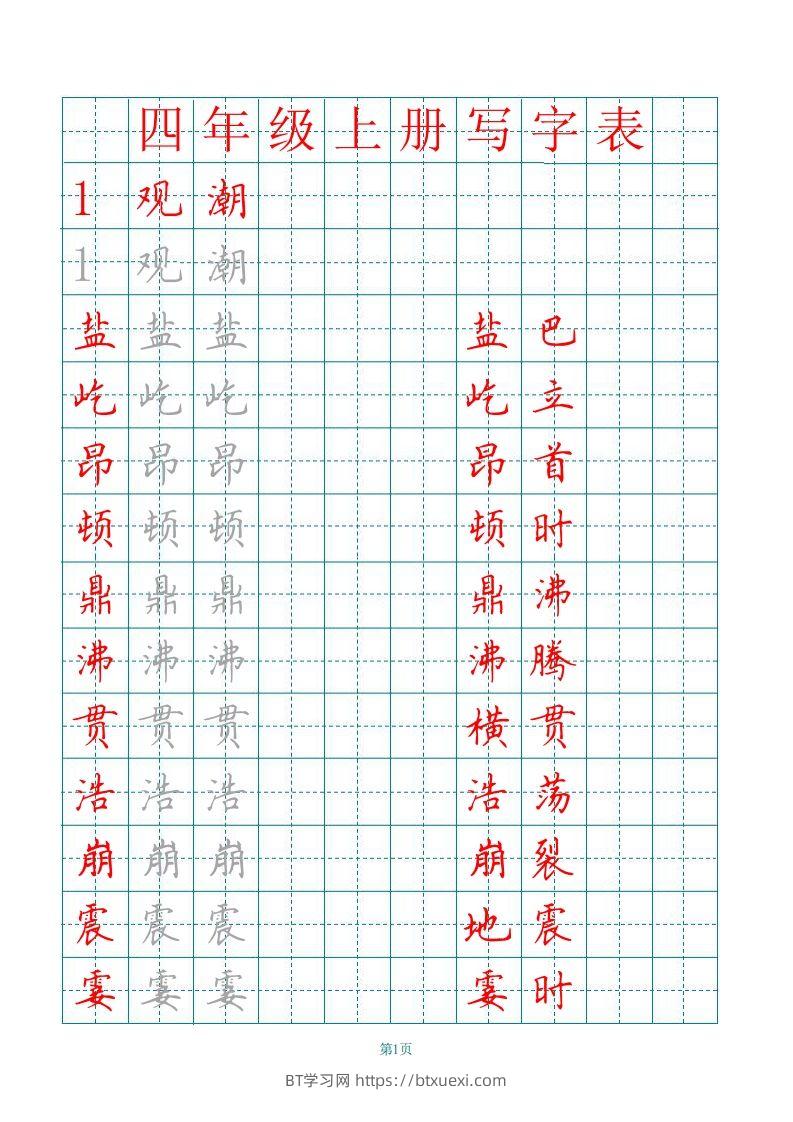 四年级上册写字表
1 观潮
1 观潮
盐盐盐 盐巴
屹屹屹 屹立
昂昂昂 昂首
顿顿顿 顿时
鼎鼎鼎 鼎沸
沸沸沸 沸腾
贯贯贯 横贯
浩浩浩 浩荡
崩崩崩 崩裂
震震震 地震
霎霎霎 霎时
第1页
BT学习网 https://btxuexi.com